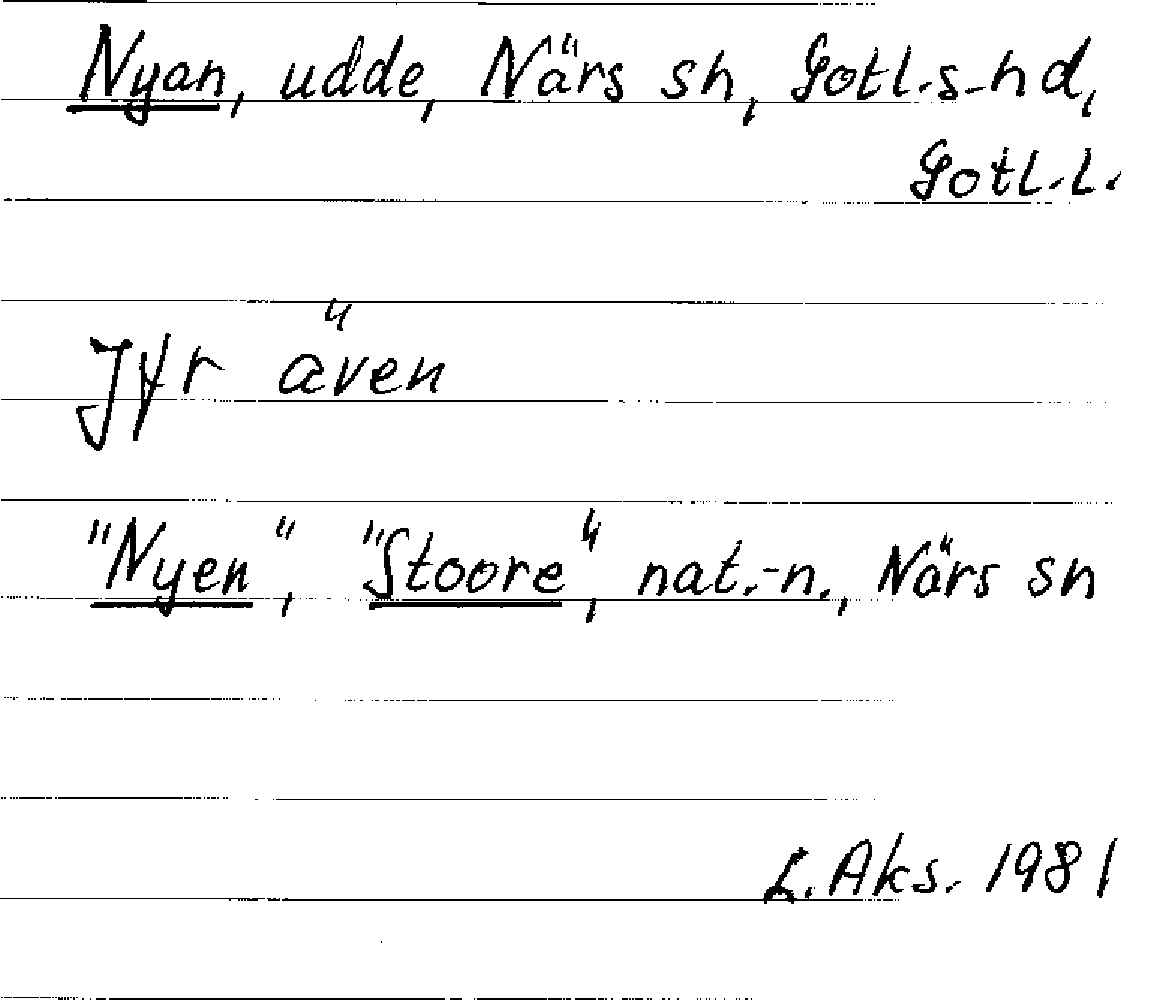 Nyan, udde, Närs sn, Gotl.s-h d,
Gotl.l.
Jfr även
"Nyen", "Stoore", nat.-n., Närs sn
L. Aks. 1981